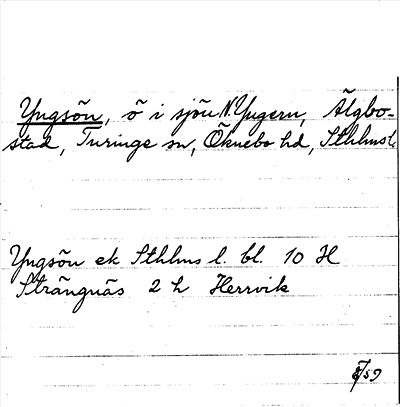 Yngsön, ö i sjön N. Yngern, Älgbo-
stad, Turinge sn, Öknebo hd, Sthlms l.
Yngsön ek Sthlms l. bl. 10 H
Strängnäs 2 h Herrvik
8/59